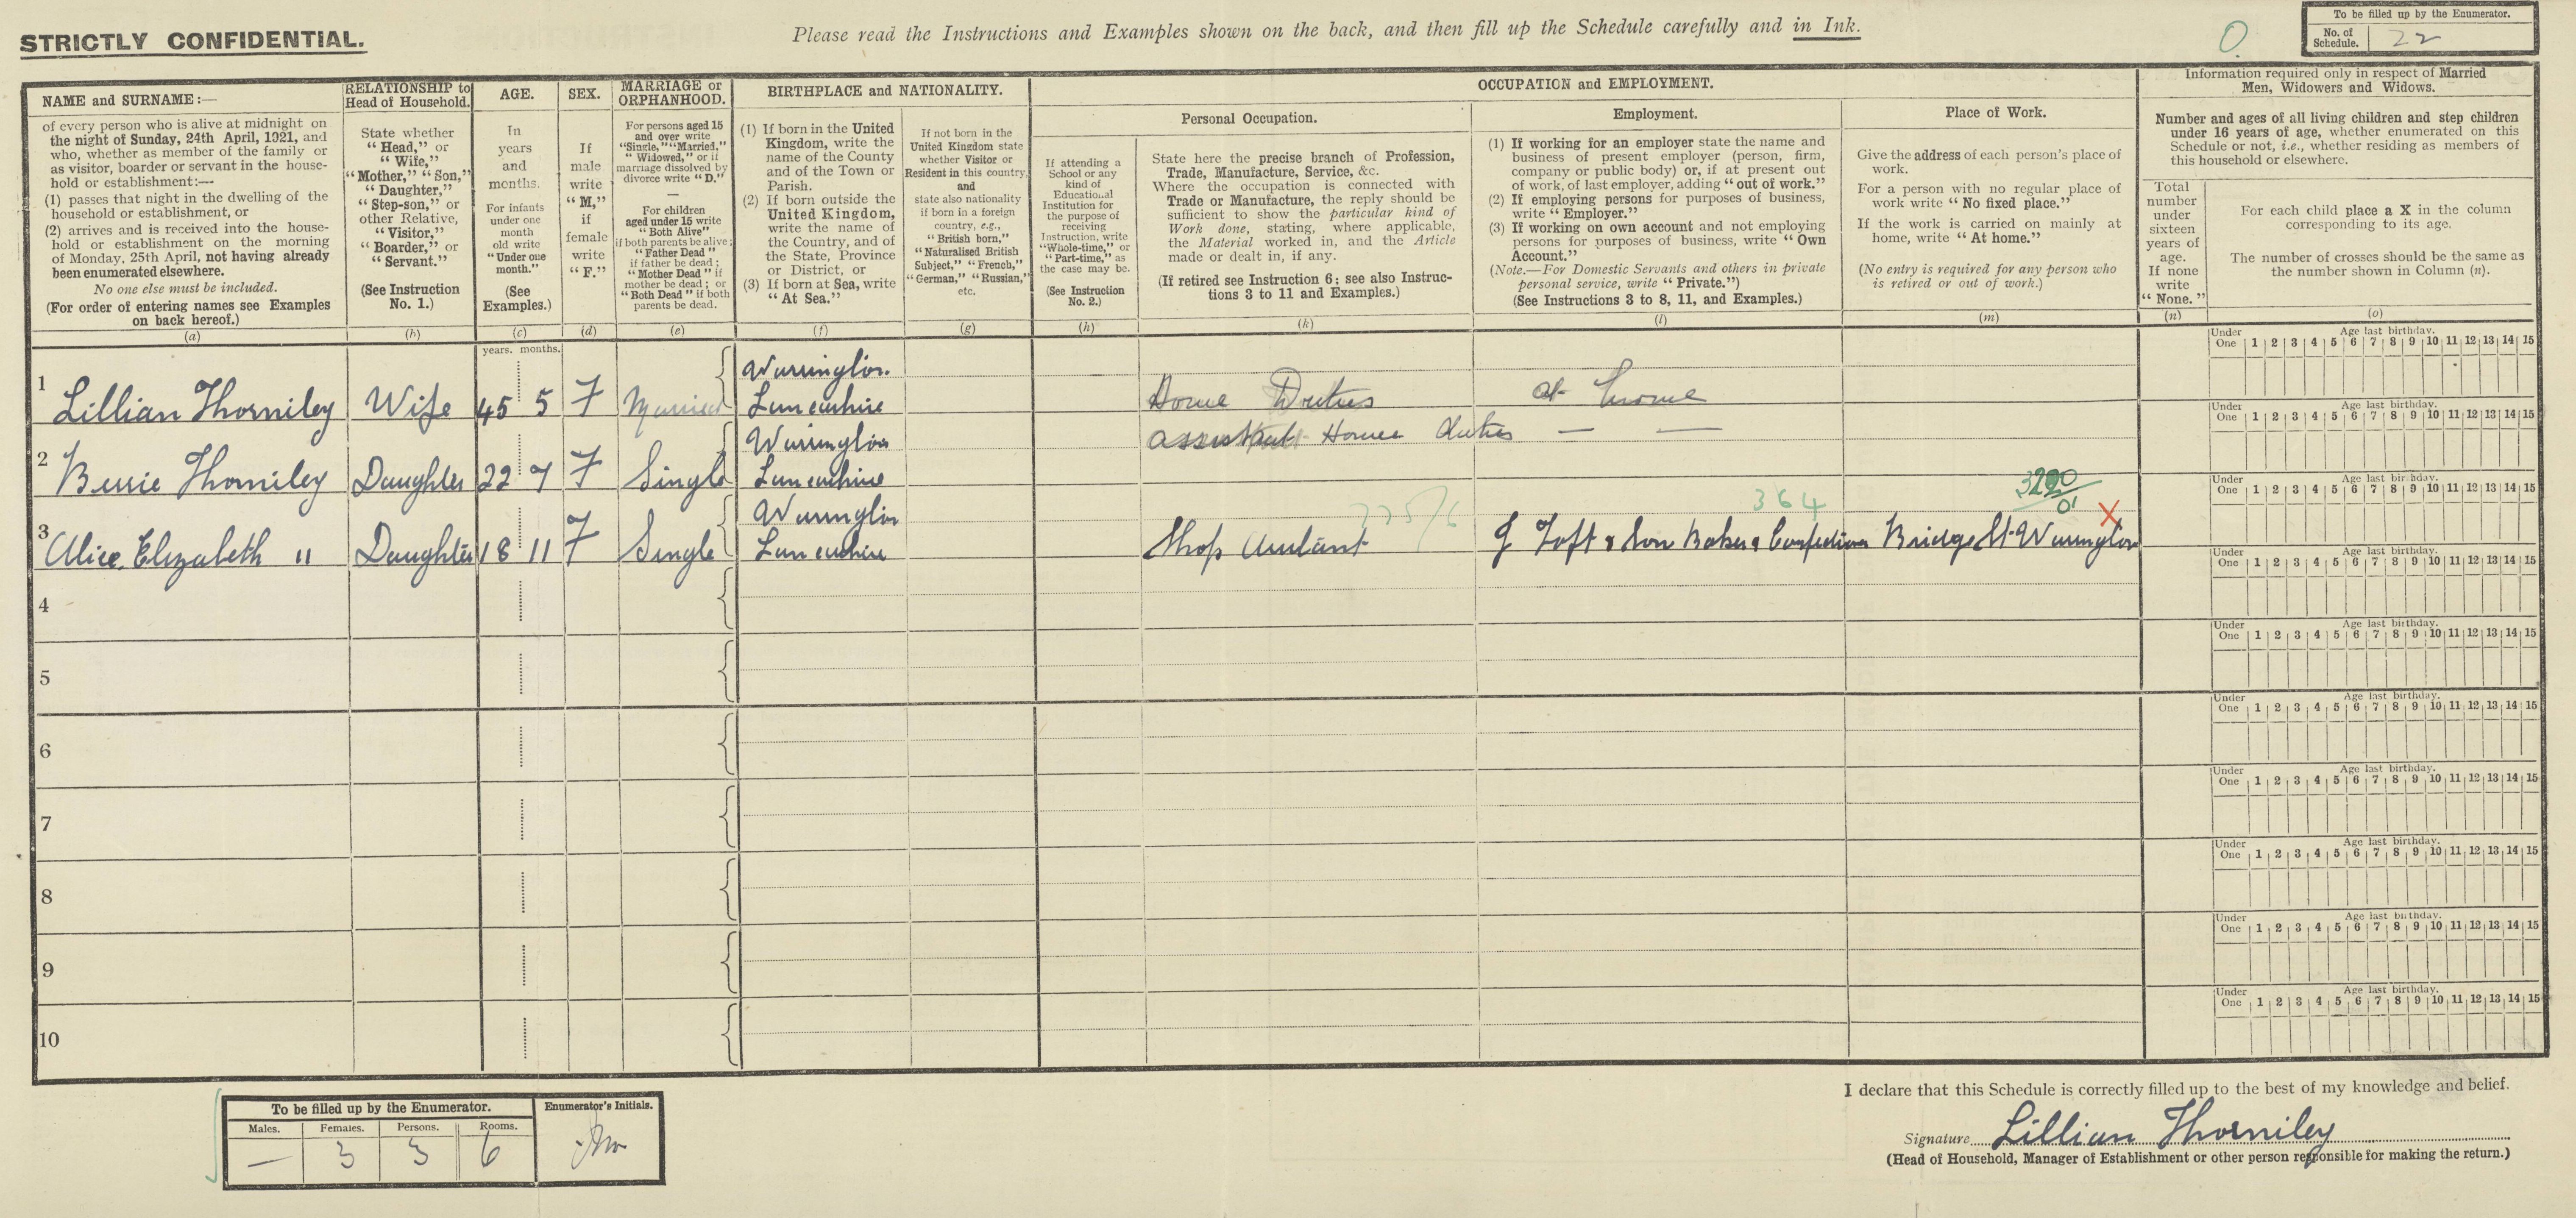 STRICTLY CONFIDENTIAL.
Please read the Instructions and Examples shown on the back, and then fill up the Schedule carefully and in Ink.
0
To be filled up by the Enumerator.
No. of Schedule. 22
NAME and SURNAME:—
of every person who is alive at midnight on
the night of Sunday, 24th April, 1921, and
who, whether as member of the family or
as visitor, boarder or servant in the house-
hold or establishment:—
(1) passes that night in the dwelling of the
household or establishment, or
(2) arrives and is received into the house-
hold or establishment on the morning
of Monday, 25th April, not having already
been enumerated elsewhere.
No one else must be included.
(For order of entering names see Examples
on back hereof.)
(a)
RELATIONSHIP to
Head of Household.
State whether
"Head," or
"Wife,"
"Mother," "Son,"
"Daughter,"
"Step-son," or
other Relative,
"Visitor,"
"Boarder," or
"Servant."
(See Instruction
No. 1.)
(b)
AGE.
In
years
and
months.
For infants
under one
month
old write
"Under one
month."
(See
Examples.)
(c)
SEX.
If
male
write
"M,"
if
female
write
"F."
(d)
MARRIAGE or
ORPHANHOOD.
For persons aged 15
and over write
"Single," "Married,"
"Widowed," or if
marriage dissolved by
divorce write "D."
—
For children
aged under 15 write
"Both Alive"
if both parents be alive;
"Father Dead"
if father be dead;
"Mother Dead" if
mother be dead; or
"Both Dead" if both
parents be dead.
(e)
BIRTHPLACE and NATIONALITY.
(1) If born in the United
Kingdom, write the
name of the County
and of the Town or
Parish.
(2) If born outside the
United Kingdom,
write the name of
the Country, and of
the State, Province
or District, or
(3) If born at Sea, write
"At Sea."
(f)
If not born in the
United Kingdom state
whether Visitor or
Resident in this country,
and
state also nationality
if born in a foreign
country, e.g.,
"British born,"
"Naturalised British
Subject," "French,"
"German," "Russian,"
etc.
(g)
OCCUPATION and EMPLOYMENT.
Personal Occupation.
If attending a
School or any
kind of
Educational
Institution for
the purpose of
receiving
Instruction, write
"Whole-time," or
"Part-time," as
the case may be.
(See Instruction
No. 2.)
(h)
State here the precise branch of Profession,
Trade, Manufacture, Service, &c.
Where the occupation is connected with
Trade or Manufacture, the reply should be
sufficient to show the particular kind of
Work done, stating, where applicable,
the Material worked in, and the Article
made or dealt in, if any.
(If retired see Instruction 6; see also Instruc-
tions 3 to 11 and Examples.)
(k)
Employment.
(1) If working for an employer state the name and
business of present employer (person, firm,
company or public body) or, if at present out
of work, of last employer, adding "out of work."
(2) If employing persons for purposes of business,
write "Employer."
(3) If working on own account and not employing
persons for purposes of business, write "Own
Account."
(Note.—For Domestic Servants and others in private
personal service, write "Private.")
(See Instructions 3 to 8, 11, and Examples.)
(l)
Place of Work.
Give the address of each person's place of
work.
For a person with no regular place of
work write "No fixed place."
If the work is carried on mainly at
home, write "At home."
(No entry is required for any person who
is retired or out of work.)
(m)
Information required only in respect of Married
Men, Widowers and Widows.
Number and ages of all living children and step children
under 16 years of age, whether enumerated on this
Schedule or not, i.e., whether residing as members of
this household or elsewhere.
Total
number
under
sixteen
years of
age.
If none
write
"None."
(n)
For each child place a X in the column
corresponding to its age.
The number of crosses should be the same as
the number shown in Column (n).
(o)
years. months.
Under One Age last birthday. 1 2 3 4 5 6 7 8 9 10 11 12 13 14 15
Warrington.
1 Lillian Thorniley Wife 45 5 F Married Lancashire Home Duties at home
Under One Age last birthday. 1 2 3 4 5 6 7 8 9 10 11 12 13 14 15
Warrington assistant Home duties — —
2 Bessie Thorniley Daughter 22 7 F Single Lancashire
Under One Age last birthday. 1 2 3 4 5 6 7 8 9 10 11 12 13 14 15
Warrington 775/6 364 X
3 Alice Elizabeth " Daughter 18 11 F Single Lancashire Shop Assistant J Toft & Son Baker & Confectioners Bridge St Warrington
Under One Age last birthday. 1 2 3 4 5 6 7 8 9 10 11 12 13 14 15
4
Under One Age last birthday. 1 2 3 4 5 6 7 8 9 10 11 12 13 14 15
5
Under One Age last birthday. 1 2 3 4 5 6 7 8 9 10 11 12 13 14 15
6
Under One Age last birthday. 1 2 3 4 5 6 7 8 9 10 11 12 13 14 15
7
Under One Age last birthday. 1 2 3 4 5 6 7 8 9 10 11 12 13 14 15
8
Under One Age last birthday. 1 2 3 4 5 6 7 8 9 10 11 12 13 14 15
9
Under One Age last birthday. 1 2 3 4 5 6 7 8 9 10 11 12 13 14 15
10
To be filled up by the Enumerator. Enumerator's Initials.
Males. Females. Persons. Rooms.
— 3 3 6
I declare that this Schedule is correctly filled up to the best of my knowledge and belief.
Signature Lillian Thorniley
(Head of Household, Manager of Establishment or other person responsible for making the return.)